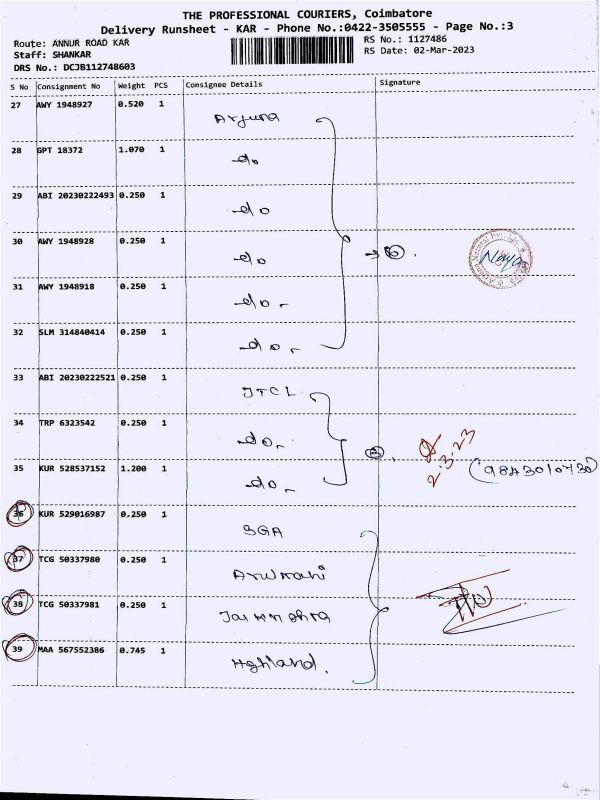 THE PROFESSIONAL COURIERS, Coimbatore
Delivery Runsheet - KAR - Phone No.:0422-3505555 - Page No.:3
Route: ANNUR ROAD KAR
RS No.: 1127486
Staff: SHANKAR
RS Date: 02-Mar-2023
DRS No.: DCJB112748603
S No Consignment No Weight PCS Consignee Details Signature
27 AWY 1948927 0.520 1 Arjuna
28 GPT 18372 1.070 1 do
29 ABI 20230222493 0.250 1 do
30 AWY 1948928 0.250 1 do
31 AWY 1948918 0.250 1 do
32 SLM 314840414 0.250 1 do
33 ABI 20230222521 0.250 1 JTCL
34 TRP 6323542 0.250 1 do
2.3.23
35 KUR 528537152 1.200 1 do
36 KUR 529016987 0.250 1 SGA
37 TCG 50337980 0.250 1
38 TCG 50337981 0.250 1
39 MAA 567552386 0.745 1 Highland